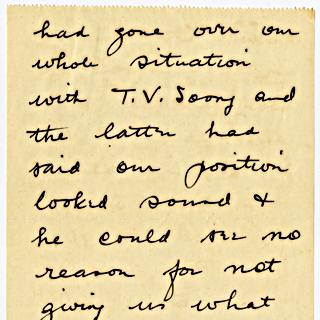 had gone over our
whole situation
with T.V. Soong and
the latter had
said our position
looked sound &
he could see no
reason for not
giving us what